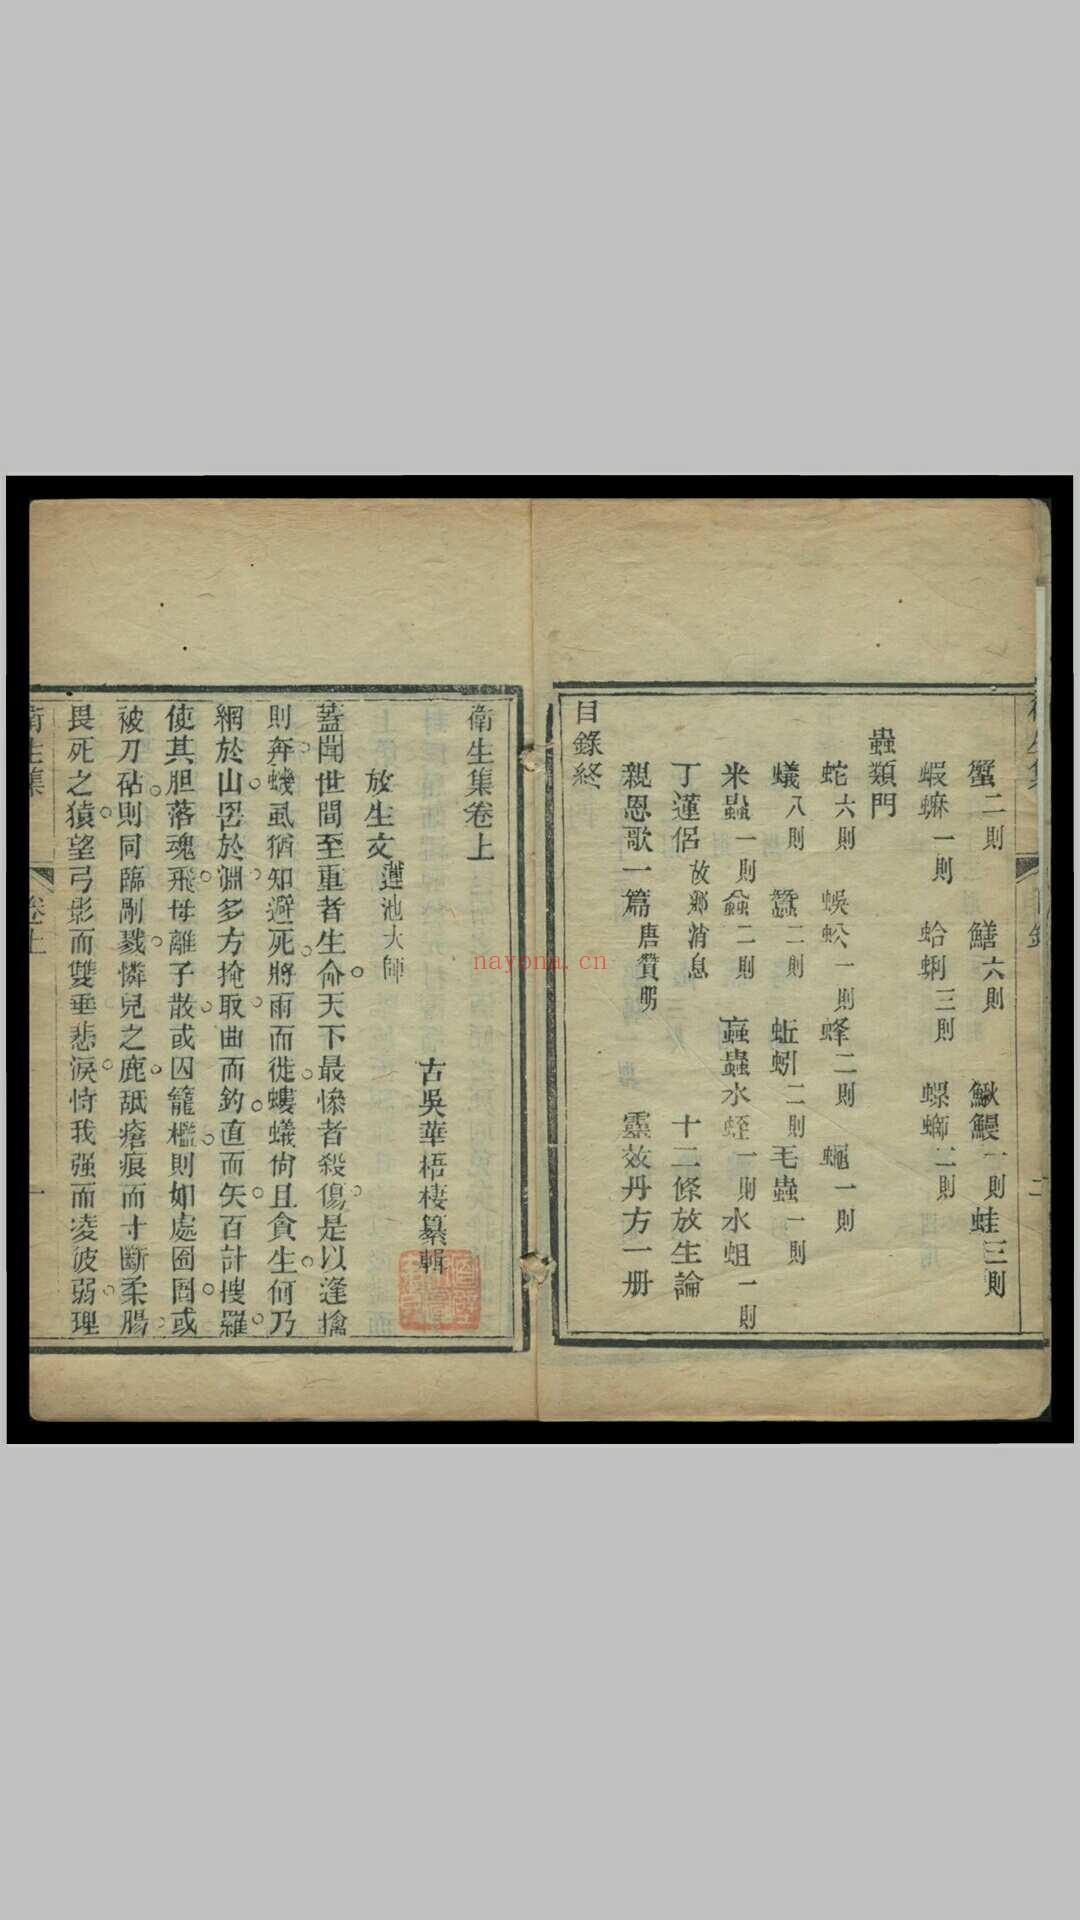 蟹二則　鱔六則　鰍鰻一則　蛙三則
蝦蟆一則　蛤蜊三則　螺螄二則
蟲類門
蛇六則　蜈蚣一則　蜂二則　蠅一則
蟻八則　蠶二則　蚯蚓二則　毛蟲一則
米蟲一則　螽二則　蝱蟲水蛭一則　水蛆一則
丁蓮侶故鄉消息　十二條放生論
親恩歌一篇唐贊勗　靈效丹方一册
目錄終
衛生集卷上
古吳華梧棲纂輯
放生文蓮池大師
蓋聞世間至重者生命天下最慘者殺傷是以逢擒
則奔蟣虱猶知避死將雨而徙螻蟻尙且貪生何乃
網於山罟於淵多方掩取曲而釣直而矢百計搜羅
使其胆落魂飛母離子散或囚籠檻則如處囹圄或
被刀砧則同臨剮戮憐兒之鹿䑛瘡痕而寸斷柔腸
畏死之猿望弓影而雙垂悲淚恃我强而凌彼弱理
衛生集　卷上　一
nayona.cn